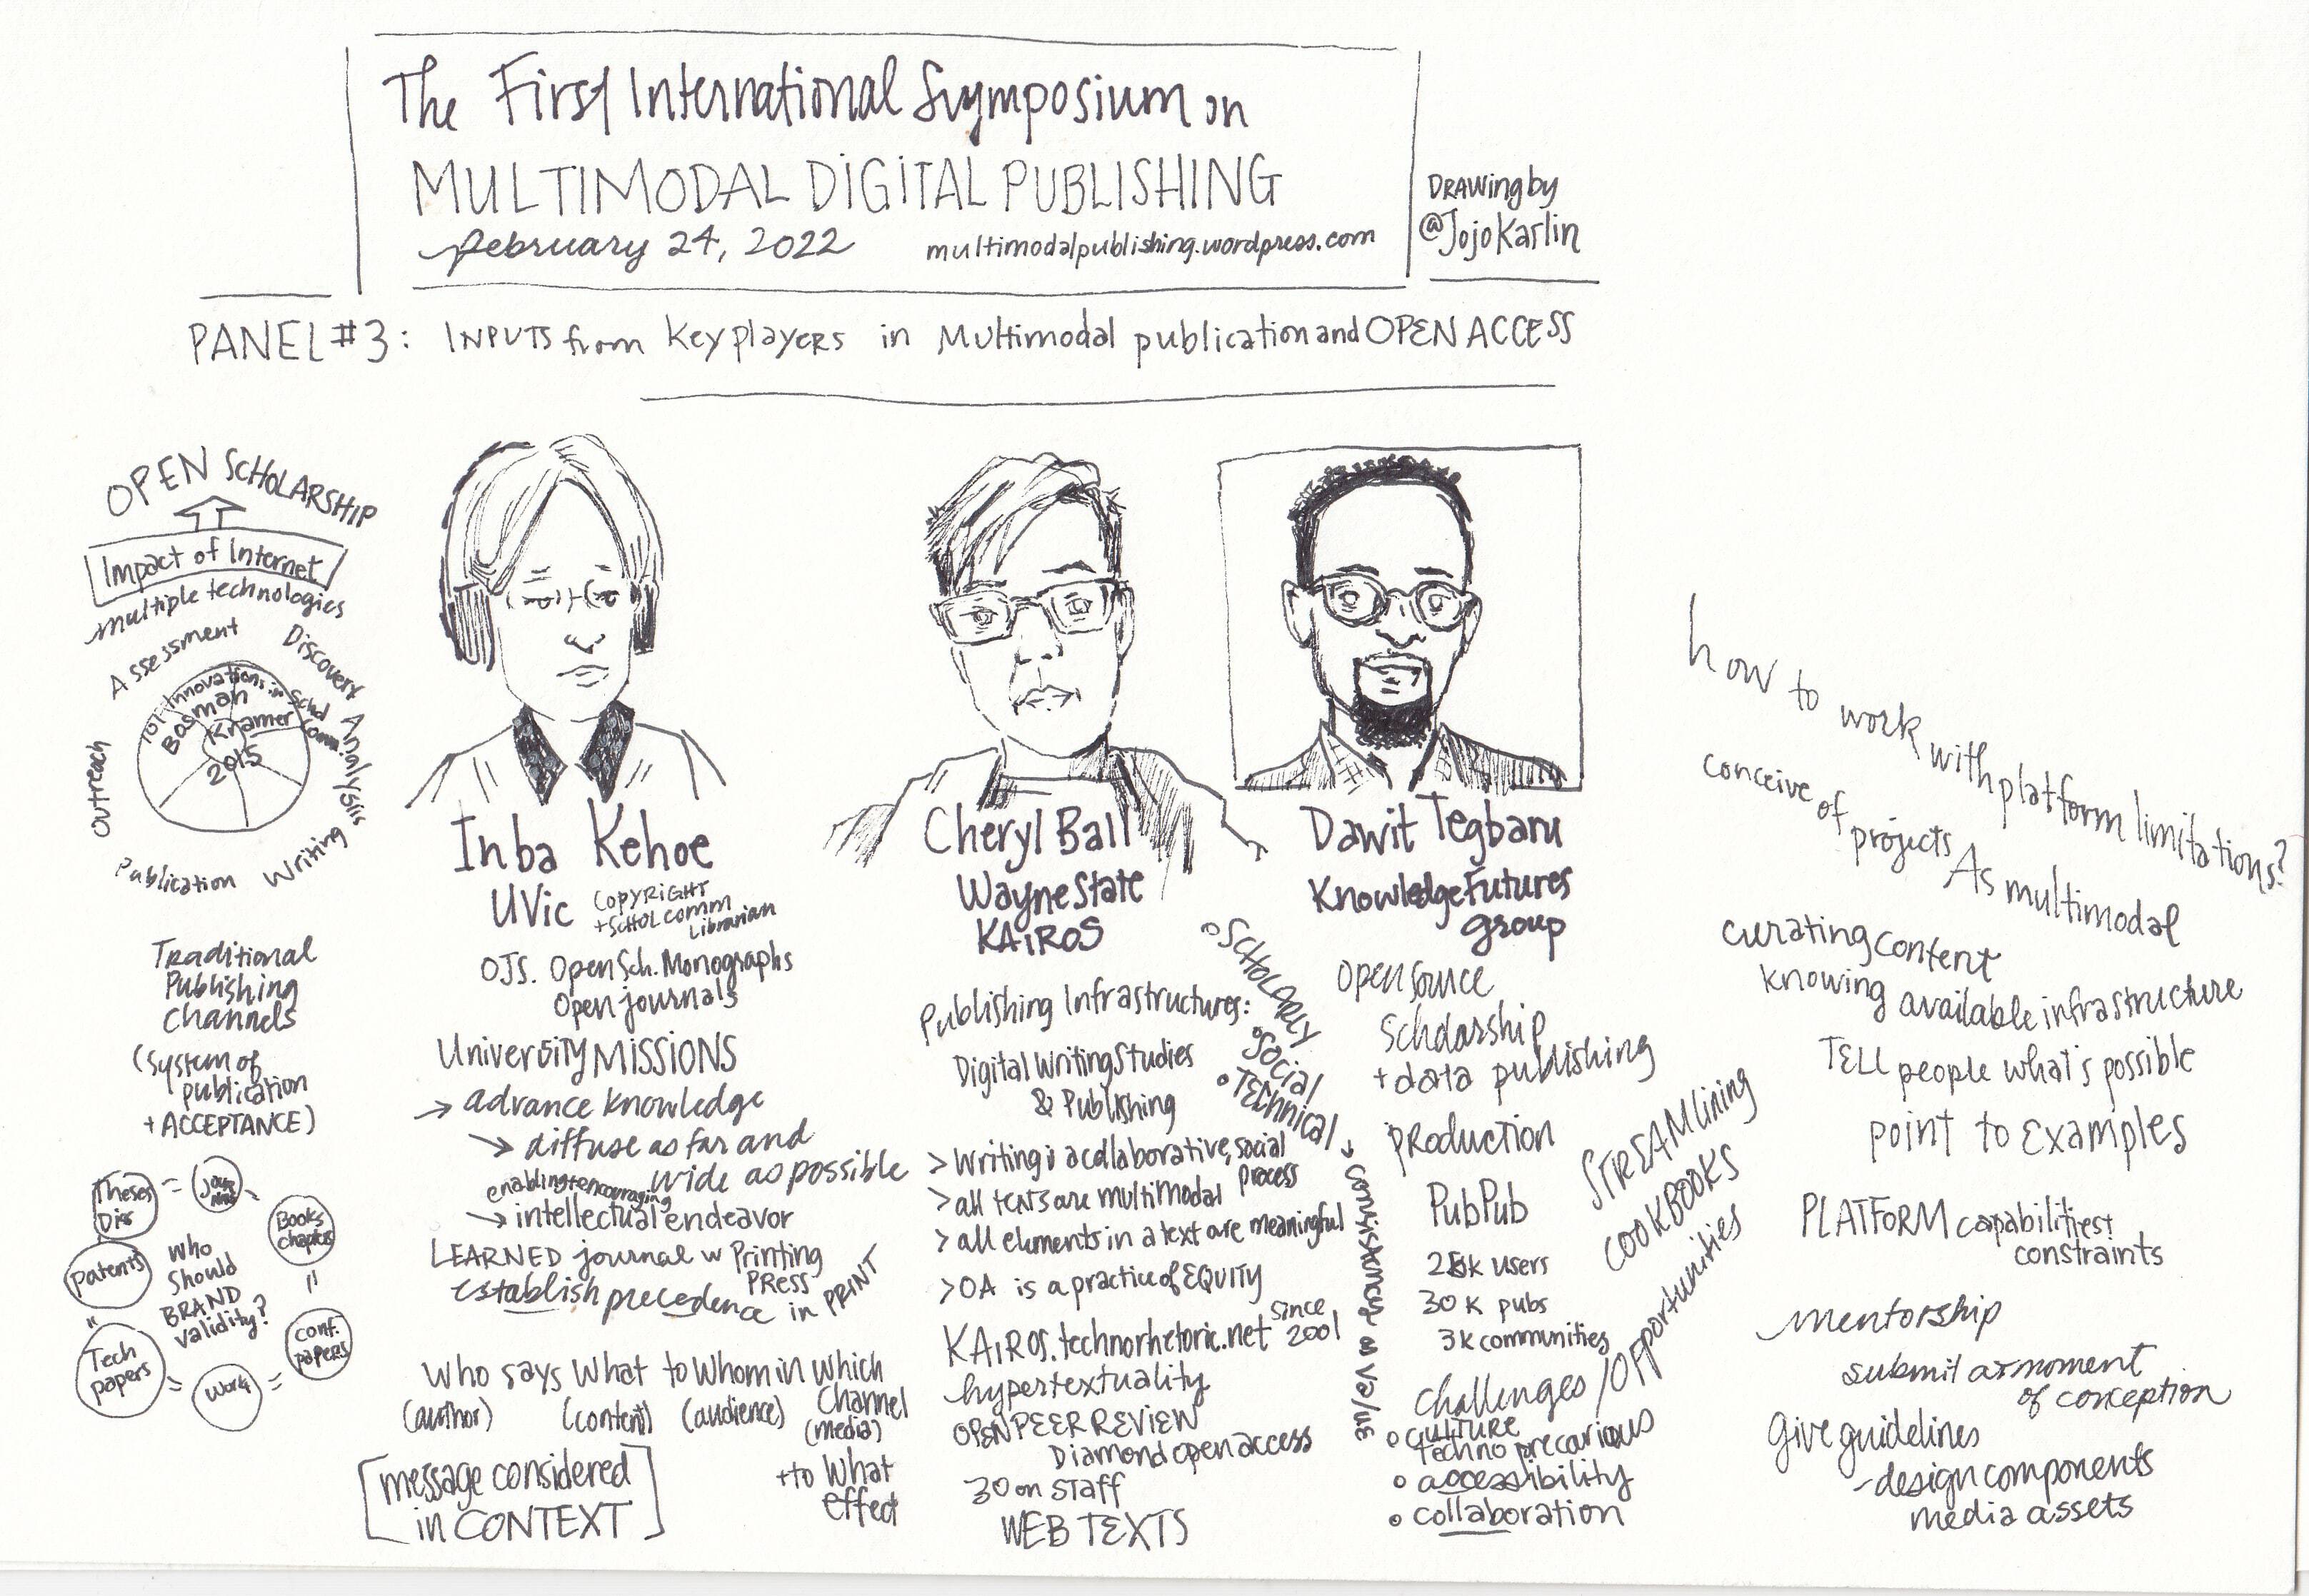 The First International Symposium on
MULTIMODAL DIGITAL PUBLISHING
february 24, 2022
multimodalpublishing.wordpress.com
DRAWing by
@JojoKarlin
PANEL #3: INPUTS from Key players in Multimodal publication and OPEN ACCESS
OPEN SCHOLARSHIP
Impact of Internet
multiple technologies
Assessment
Discovery
Analysis
Writing
Publication
Outreach
101 Innovations in Schol Comm
Bosman
Kramer
2015
Traditional
Publishing
Channels
(System of
publication
+ ACCEPTANCE)
Theses
Diss
=
Books
chapters
=
conf.
papers
=
Work
=
Tech
papers
=
Patents
Who
Should
BRAND
validity?
Inba Kehoe
UVic
COPYRIGHT
+ SCHOL COMM
Librarian
OJS. Open Sch. Monographs
Open journals
University MISSIONS
→ advance knowledge
→ diffuse as far and
wide as possible
enabling + encouraging
→ intellectual endeavor
LEARNED journal w Printing
PRess
establish precedence in PRINT
Who says What to Whom in which
Channel
(author) (content) (audience) (media)
+to What
effect
[message considered
in CONTEXT]
Cheryl Ball
Wayne State
KAiROS
Publishing Infrastructures:
• SCHOLARLY
• Social
• TEChnical
→ consistency as value
Digital Writing Studies
& Publishing
> Writing is a collaborative, social
process
> all texts are multimodal
> all elements in a text are meaningful
> OA is a practice of EQUITY
KAIROS.technorhetoric.net
since
2001
hypertextuality
OPEN PEER REVIEW
Diamond open access
30 on staff
WEB TEXTS
Dawit Tegbaru
Knowledge Futures
group
Open Source
Scholarship
+ data publishing
PRoduction
PubPub
users
30 K pubs
3k communities
STREAMlining
COOKBOOKS
Challenges / Opportunities
• CULTURE
Techno precarious
• accessibility
• collaboration
how to work with platform limitations?
conceive of projects As multimodal
curating content
knowing available infrastructure
TELL people what's possible
point to Examples
PLATFORM capabilities +
constraints
mentorship
submit as moment
of conception
Give guidelines
- design components
media assets